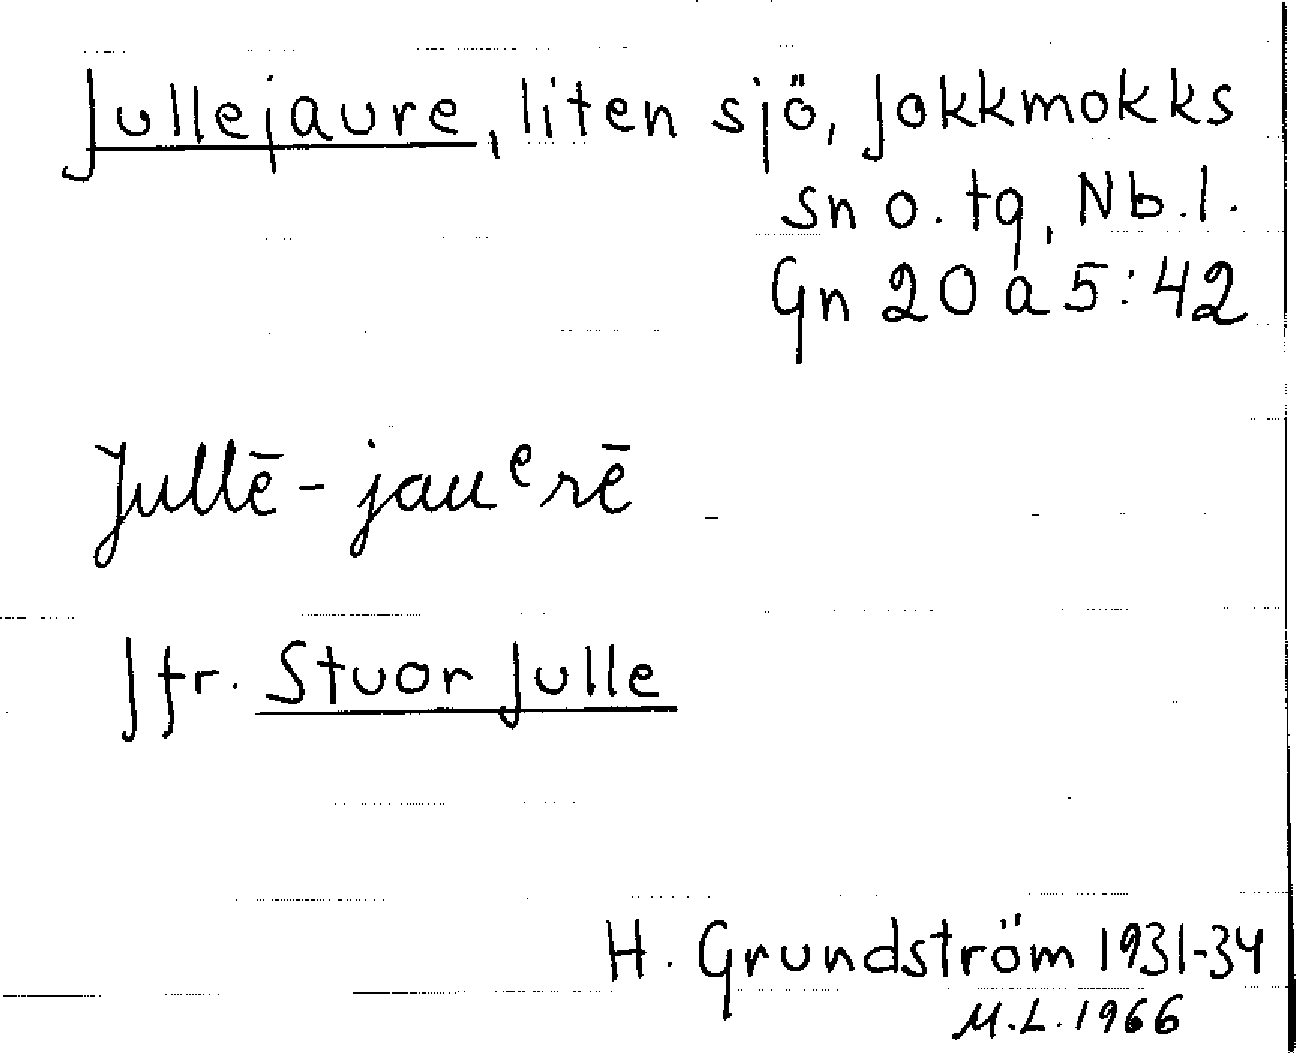 Jullejaure, liten sjö, Jokkmokks
sn o. tg, Nb.l.
Gn 20 a 5:42
Jullē-jauᵉrē
Jfr. Stuor Julle
H. Grundström 1931-34
M.L. 1966